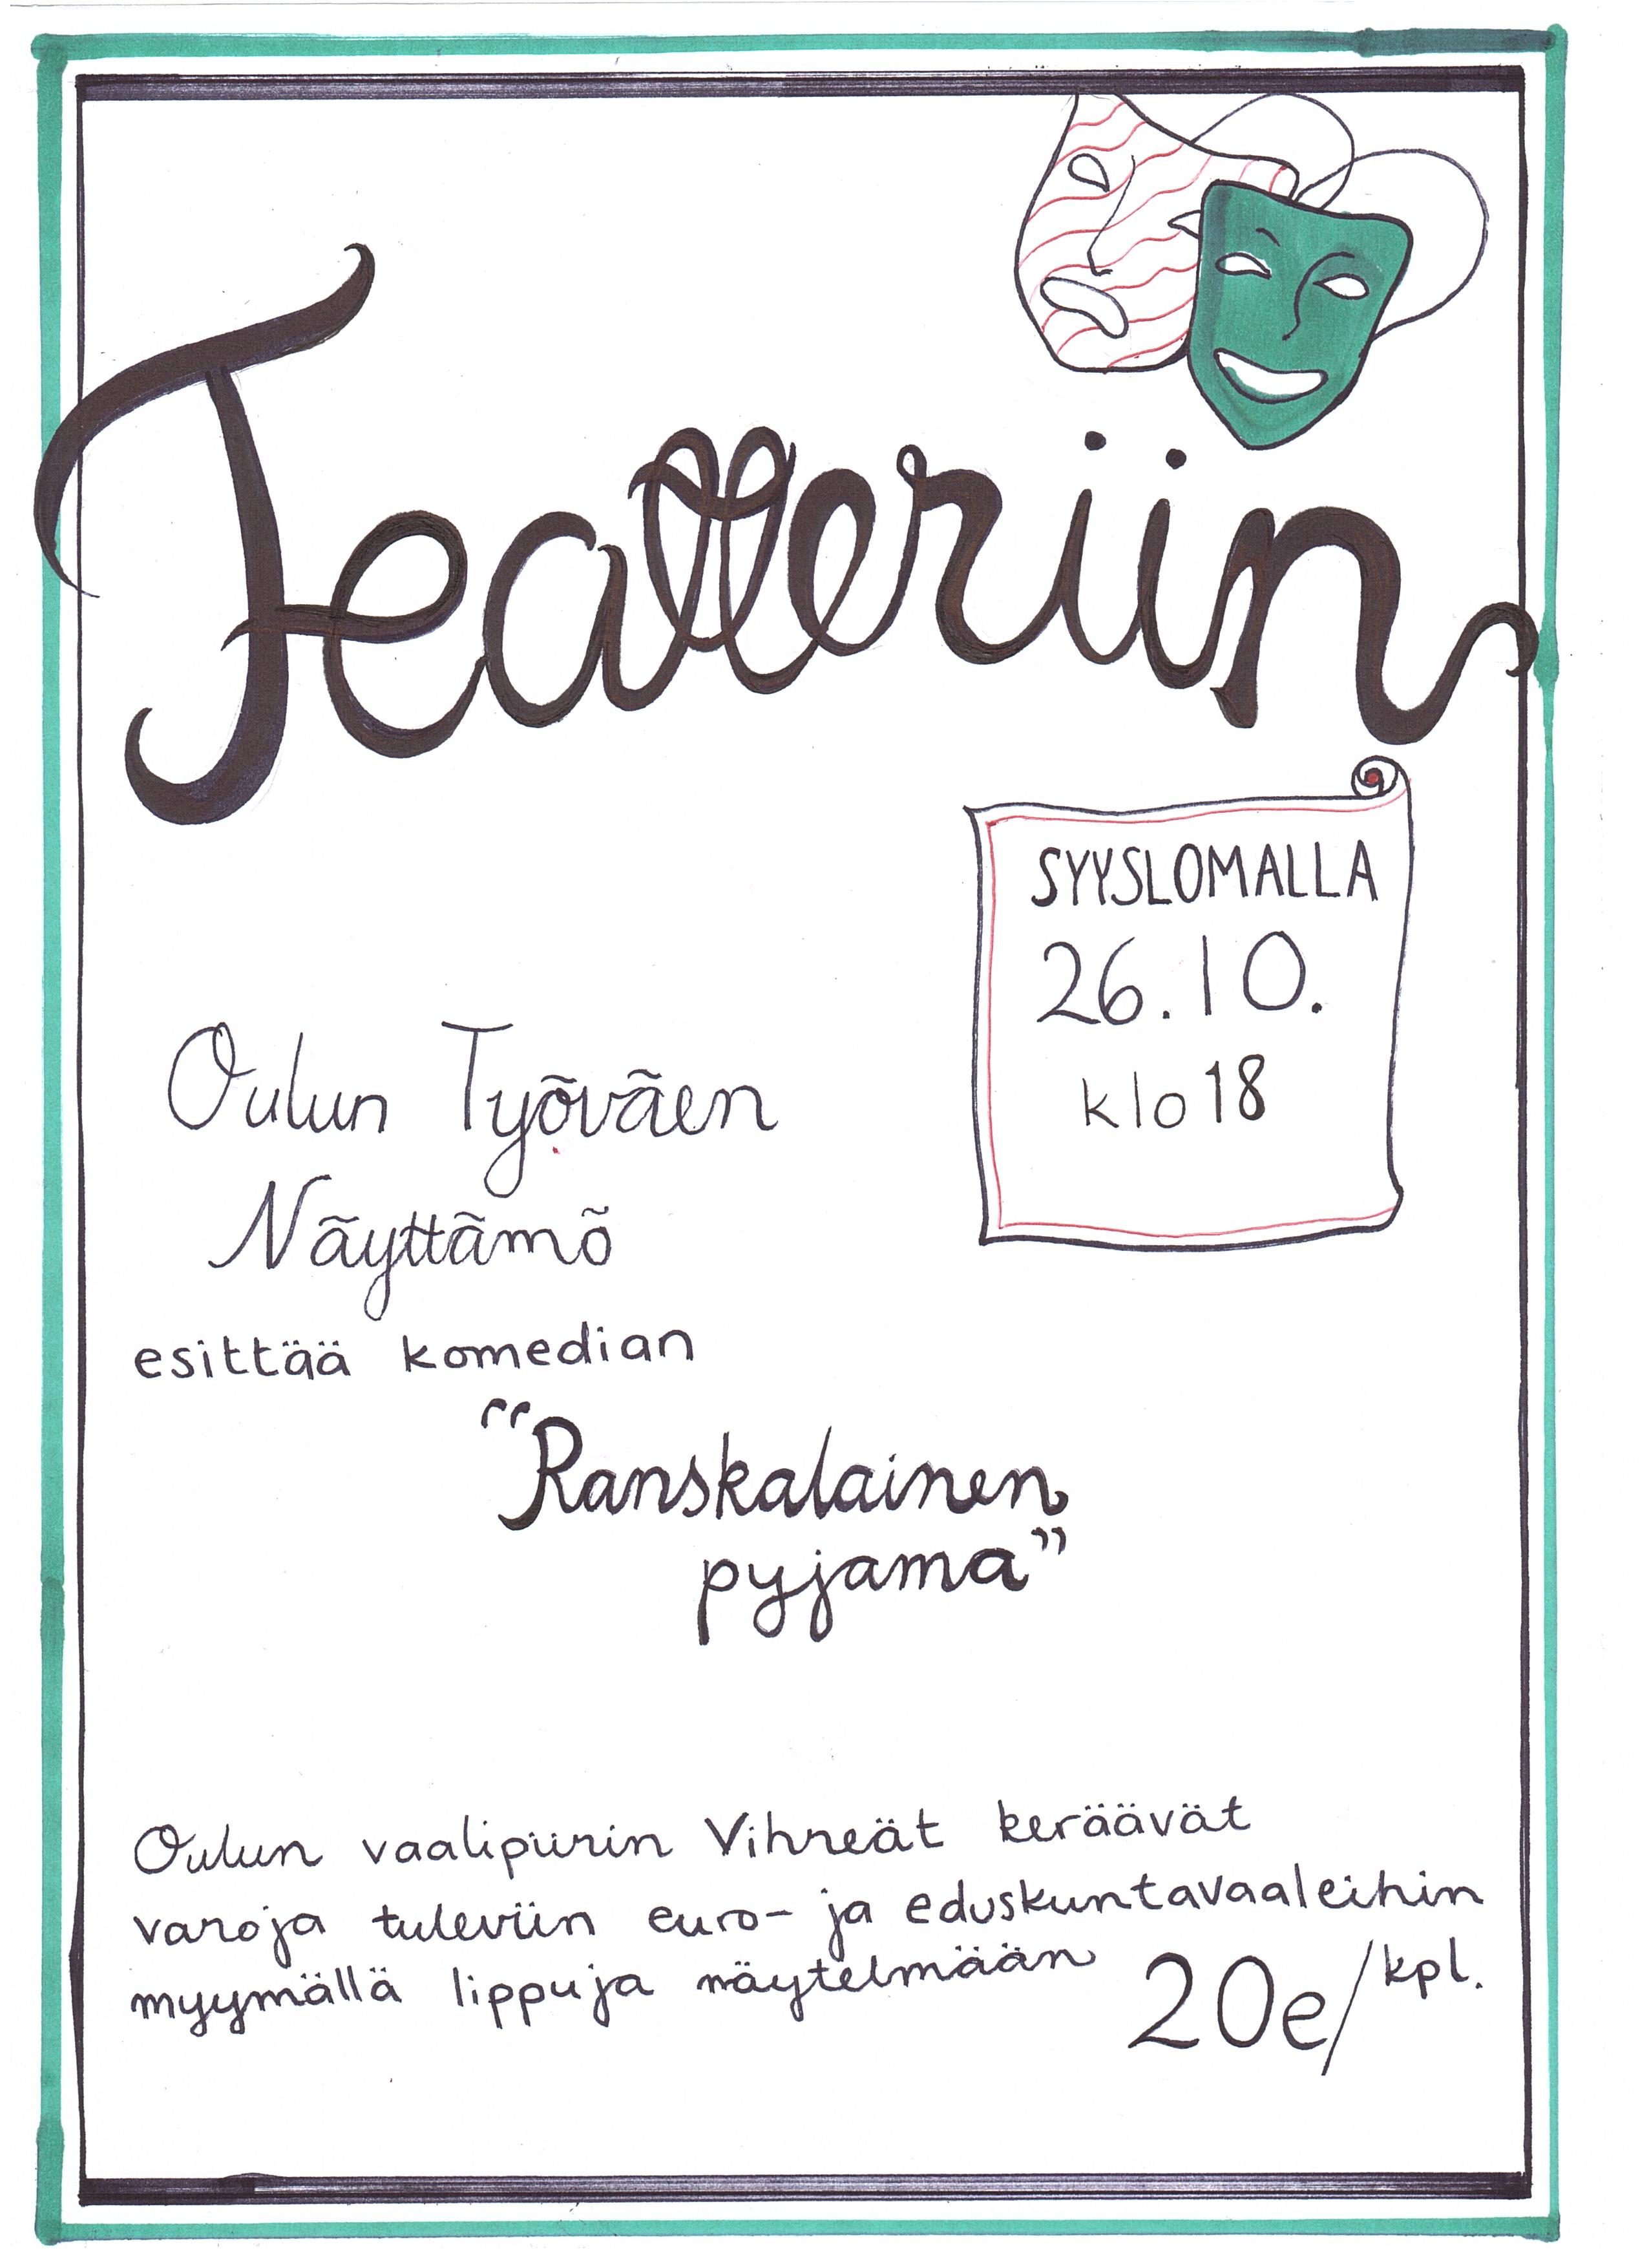 Teatteriin
SYYSLOMALLA
26.10.
klo 18
Oulun Työväen
Näyttämö
esittää komedian
“Ranskalainen
pyjama”
Oulun vaalipiirin Vihreät keräävät
varoja tuleviin euro- ja eduskuntavaaleihin
myymällä lippuja näytelmään 20e/kpl.